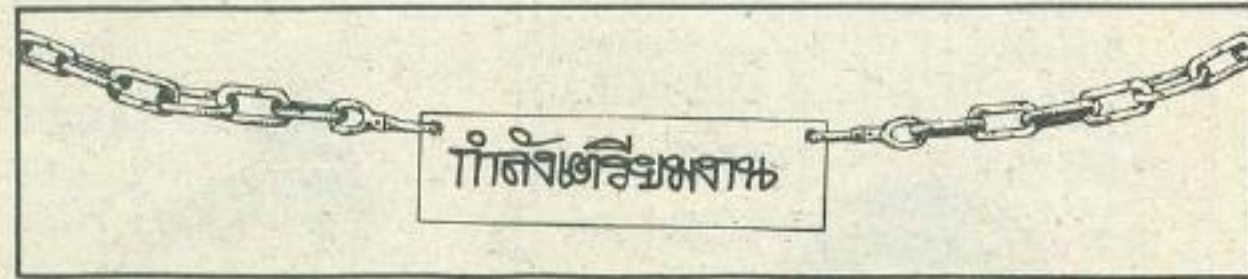 กำลังเตรียมงาน